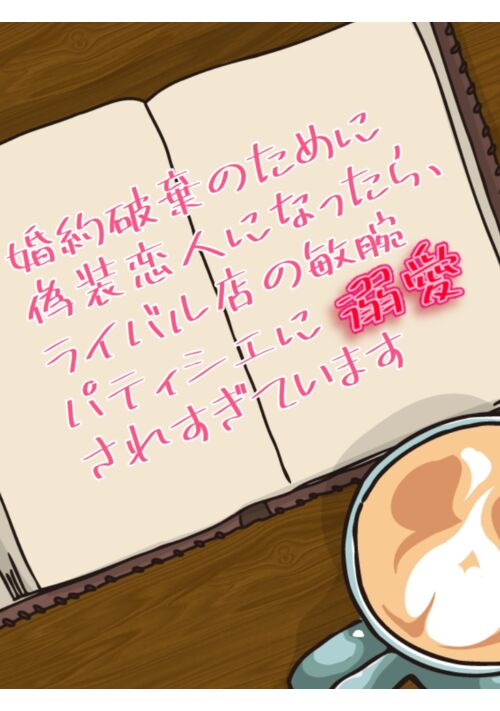 婚約破棄のために
偽装恋人になったら、
ライバル店の敏腕
パティシエに溺愛
されすぎています